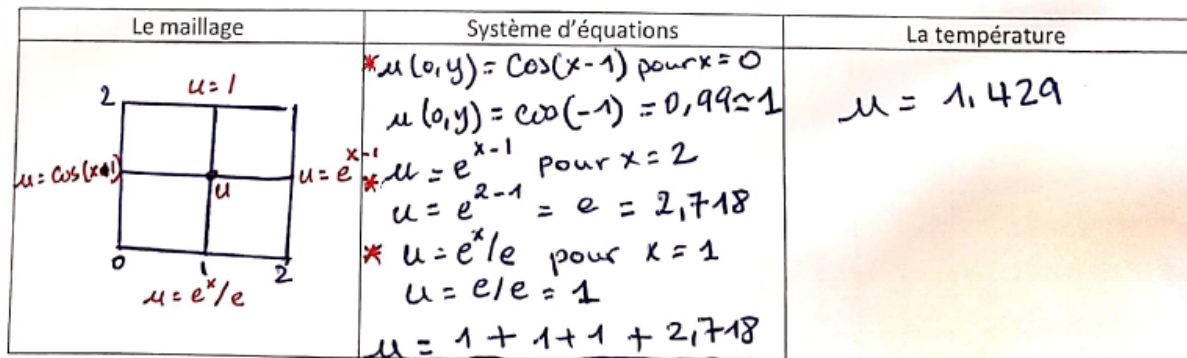 Le maillage
Système d'équations
La température
2
u=1
u=cos(x-1)
u
u=e^x-1
0
1
2
u=e^x/e
*u(0,y)=Cos(x-1) pour x=0
u(0,y)=cos(-1)=0,99≃1
*u=e^x-1 pour x=2
u=e^2-1=e=2,718
* u=e^x/e pour x=1
u=e/e=1
u=1+1+1+2,718
u=1.429